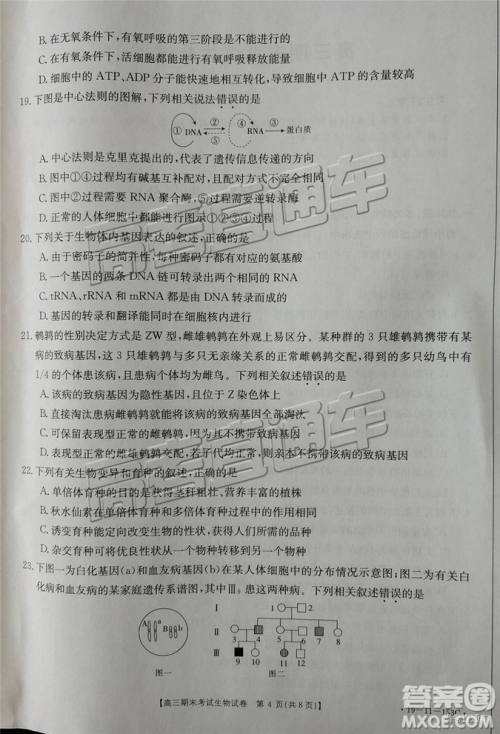 B. 在无氧条件下,有氧呼吸的第三阶段是不能进行的
C. 在有氧条件下,活细胞都能进行有氧呼吸释放能量
D. 细胞中的 ATP、ADP 分子能快速地相互转化,导致细胞中 ATP 的含量较高
19. 下图是中心法则的图解,下列相关说法错误的是
① DNA ② ③ ④ RNA ⑤ 蛋白质
A. 中心法则是克里克提出的,代表了遗传信息传递的方向
B. 图中①④过程均有碱基互补配对发生
C. 图中②过程需要 RNA 聚合酶,⑤过程需要逆转录酶
D. 正常的人体细胞中都能进行①②③④过程
20. 下列关于生物体内基因表达的叙述,正确的是
A. 由于密码子的简并性,每种密码子都有对应的氨基酸
B. 一个基因的两条 DNA 链可转录出两条相同的 RNA
C. tRNA、rRNA 和 mRNA 都是由 DNA 转录而成的
D. 基因的转录和翻译能同时在细胞核内进行
21. 鹌鹑的性别决定方式是 ZW 型,雌雄鹌鹑在外观上易区分。某种群的 3 只雄鹌鹑携带有某
病的致病基因,这 3 只雄鹌鹑与多只无亲缘关系的正常雌鹌鹑交配,得到的子一代中都有
1/4 的个体患该病,且患病个体均为雌鸟。下列相关叙述错误的是
A. 该病的致病基因为隐性基因,且位于 Z 染色体上
B. 直接淘汰患病雌鹌鹑可将致病基因全部淘汰
C. 可保留表现型正常的雌鹌鹑不携带致病基因
D. 表现型正常的雌雄鹌鹑交配,若子代均正常,则双亲不一定都是纯合子
22. 下列有关生物变异和育种的叙述,正确的是
A. 单倍体育种的目的是获得茎秆粗壮、营养丰富的植株
B. 秋水仙素在单倍体育种和多倍体育种过程中的作用相同
C. 诱变育种能定向改变生物的性状,获得人们所需的品种
D. 杂交育种可将优良性状从一个物种转移到另一个物种
23. 下图一为白化基因(a)和血友病基因(b)在某人体细胞中的分布情况示意图;图二为有关白
化病和血友病的某家庭遗传系谱图,其中Ⅲ₉ 患两种病。下列相关叙述错误的是
A a B b
图一
Ⅰ 1 2
Ⅱ 3 4 5 6 7 8
Ⅲ 9 10 11 12
图二
【高三期末考试生物试卷 第 4 页(共 8 页)】
高考直通车
高考直通车